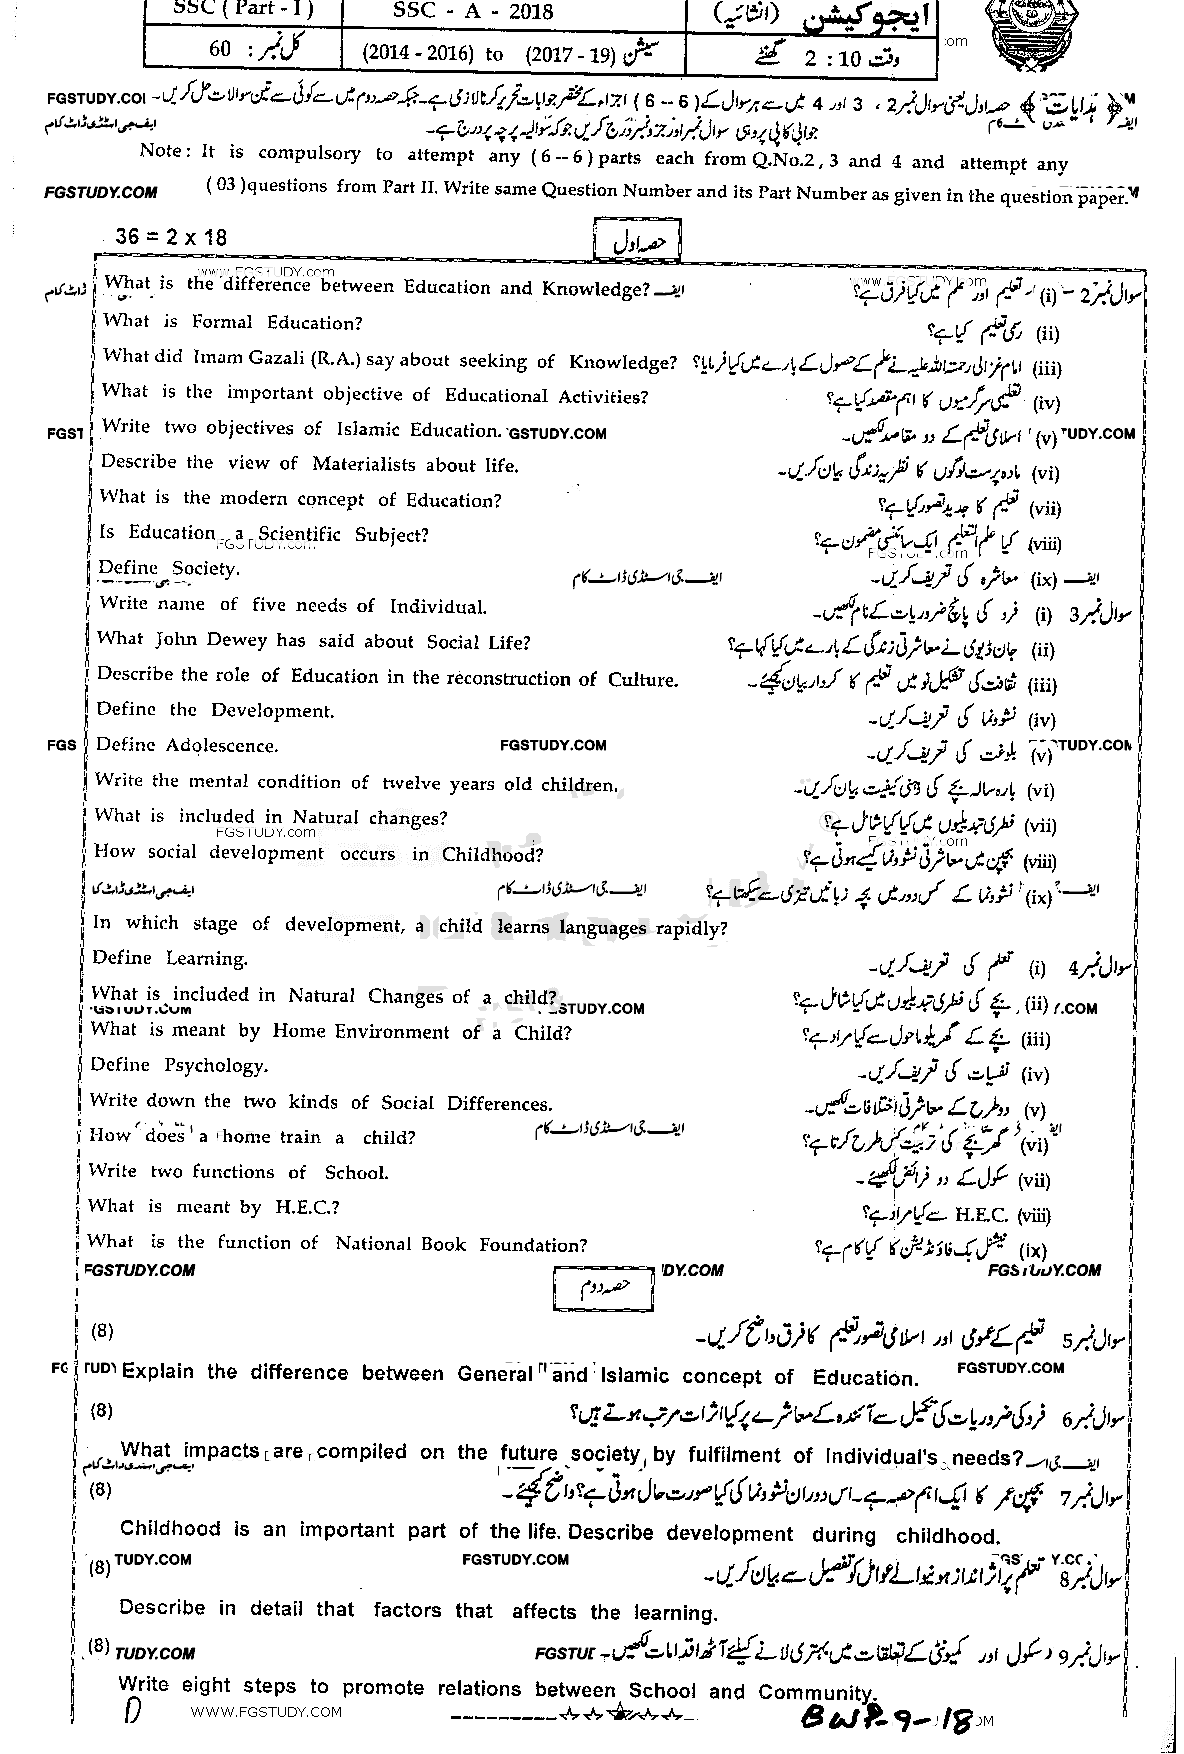 SSC ( Part - I ) SSC - A - 2018 ایجوکیشن (انشائیہ)
کل نمبر : 60 (2014 - 2016) to (2017 - 19) سیشن وقت 2 : 10 گھنٹے
FGSTUDY.COM حصہ اول یعنی سوال نمبر 2 ، 3 اور 4 میں سے ہر سوال کے (6 – 6) اجزاء کے مختصر جوابات تحریر کرنا لازمی ہے۔ جبکہ حصہ دوم میں سے کوئی سے تین سوالات حل کریں۔
جوابی کاپی پر وہی سوال نمبر اور جزو نمبر درج کریں جو کہ سوالیہ پرچہ پر درج ہے۔
Note: It is compulsory to attempt any (6 -- 6) parts each from Q.No.2, 3 and 4 and attempt any
FGSTUDY.COM (03)questions from Part II. Write same Question Number and its Part Number as given in the question paper.
36 = 2 x 18 حصہ اول
What is the difference between Education and Knowledge? سوال نمبر 2 – (i) تعلیم اور علم میں کیا فرق ہے؟
What is Formal Education? (ii) رسمی تعلیم کیا ہے؟
What did Imam Gazali (R.A.) say about seeking of Knowledge? (iii) امام غزالی رحمتہ اللہ علیہ نے علم کے حصول کے بارے میں کیا فرمایا؟
What is the important objective of Educational Activities? (iv) تعلیمی سرگرمیوں کا اہم مقصد کیا ہے؟
Write two objectives of Islamic Education. (v) اسلامی تعلیم کے دو مقاصد لکھیں۔
Describe the view of Materialists about life. (vi) مادہ پرست لوگوں کا نظریہ زندگی بیان کریں۔
What is the modern concept of Education? (vii) تعلیم کا جدید تصور کیا ہے؟
Is Education a Scientific Subject? (viii) کیا علم التعلیم ایک سائنسی مضمون ہے؟
Define Society. ایف جی اسٹڈی ڈاٹ کام (ix) معاشرہ کی تعریف کریں۔
Write name of five needs of Individual. سوال نمبر 3 (i) فرد کی پانچ ضروریات کے نام لکھیں۔
What John Dewey has said about Social Life? (ii) جان ڈیوی نے معاشرتی زندگی کے بارے میں کیا کہا ہے؟
Describe the role of Education in the reconstruction of Culture. (iii) ثقافت کی تشکیل نو میں تعلیم کا کردار بیان کیجئے۔
Define the Development. (iv) نشوونما کی تعریف کریں۔
Define Adolescence. FGSTUDY.COM (v) بلوغت کی تعریف کریں۔
Write the mental condition of twelve years old children. (vi) بارہ سالہ بچے کی ذہنی کیفیت بیان کریں۔
What is included in Natural changes? (vii) فطری تبدیلیوں میں کیا کیا شامل ہے؟
FGSTUDY.com
How social development occurs in Childhood? (viii) بچپن میں معاشرتی نشوونما کیسے ہوتی ہے؟
ایف جی اسٹڈی ڈاٹ کام (ix) نشوونما کے کس دور میں بچہ زبانیں تیزی سے سیکھتا ہے؟
In which stage of development, a child learns languages rapidly?
Define Learning. سوال نمبر 4 (i) تعلم کی تعریف کریں۔
What is included in Natural Changes of a child? (ii) بچے کی فطری تبدیلیوں میں کیا شامل ہے؟
What is meant by Home Environment of a Child? (iii) بچے کے گھریلو ماحول سے کیا مراد ہے؟
Define Psychology. (iv) نفسیات کی تعریف کریں۔
Write down the two kinds of Social Differences. (v) دو طرح کے معاشرتی اختلافات لکھیں۔
How does a home train a child? ایف جی اسٹڈی ڈاٹ کام (vi) گھر بچے کی تربیت کس طرح کرتا ہے؟
Write two functions of School. (vii) سکول کے دو فرائض لکھیئے۔
What is meant by H.E.C.? (viii) H.E.C. سے کیا مراد ہے؟
What is the function of National Book Foundation? (ix) نیشنل بک فاؤنڈیشن کا کیا کام ہے؟
FGSTUDY.COM حصہ دوم FGSTUDY.COM
(8) سوال نمبر 5 تعلیم کے عمومی اور اسلامی تصور تعلیم کا فرق واضح کریں۔
Explain the difference between General and Islamic concept of Education. FGSTUDY.COM
(8) سوال نمبر 6 فرد کی ضروریات کی تکمیل سے آئندہ کے معاشرے پر کیا اثرات مرتب ہوتے ہیں؟
What impacts are compiled on the future society by fulfilment of Individual's needs?
(8) سوال نمبر 7 بچپن عمر کا ایک اہم حصہ ہے۔ اس دوران نشوونما کی کیا صورت حال ہوتی ہے؟ واضح کیجئے۔
Childhood is an important part of the life. Describe development during childhood.
(8) FGSTUDY.COM سوال نمبر 8 تعلم پر اثر انداز ہونیوالے عوامل کو تفصیل سے بیان کریں۔
Describe in detail that factors that affects the learning.
(8) سوال نمبر 9 سکول اور کمیونٹی کے تعلقات میں بہتری لانے کیلئے آٹھ اقدامات لکھیں۔
Write eight steps to promote relations between School and Community.
D WWW.FGSTUDY.COM BWP-9-18